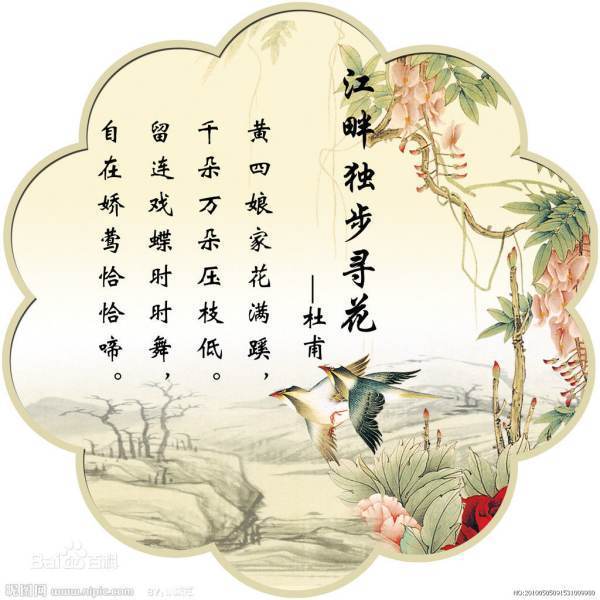 江畔独步寻花
—杜甫
黄四娘家花满蹊，
千朵万朵压枝低。
留连戏蝶时时舞，
自在娇莺恰恰啼。
Bai百科
昵图网 www.nipic.com
NO:20100505091531009900